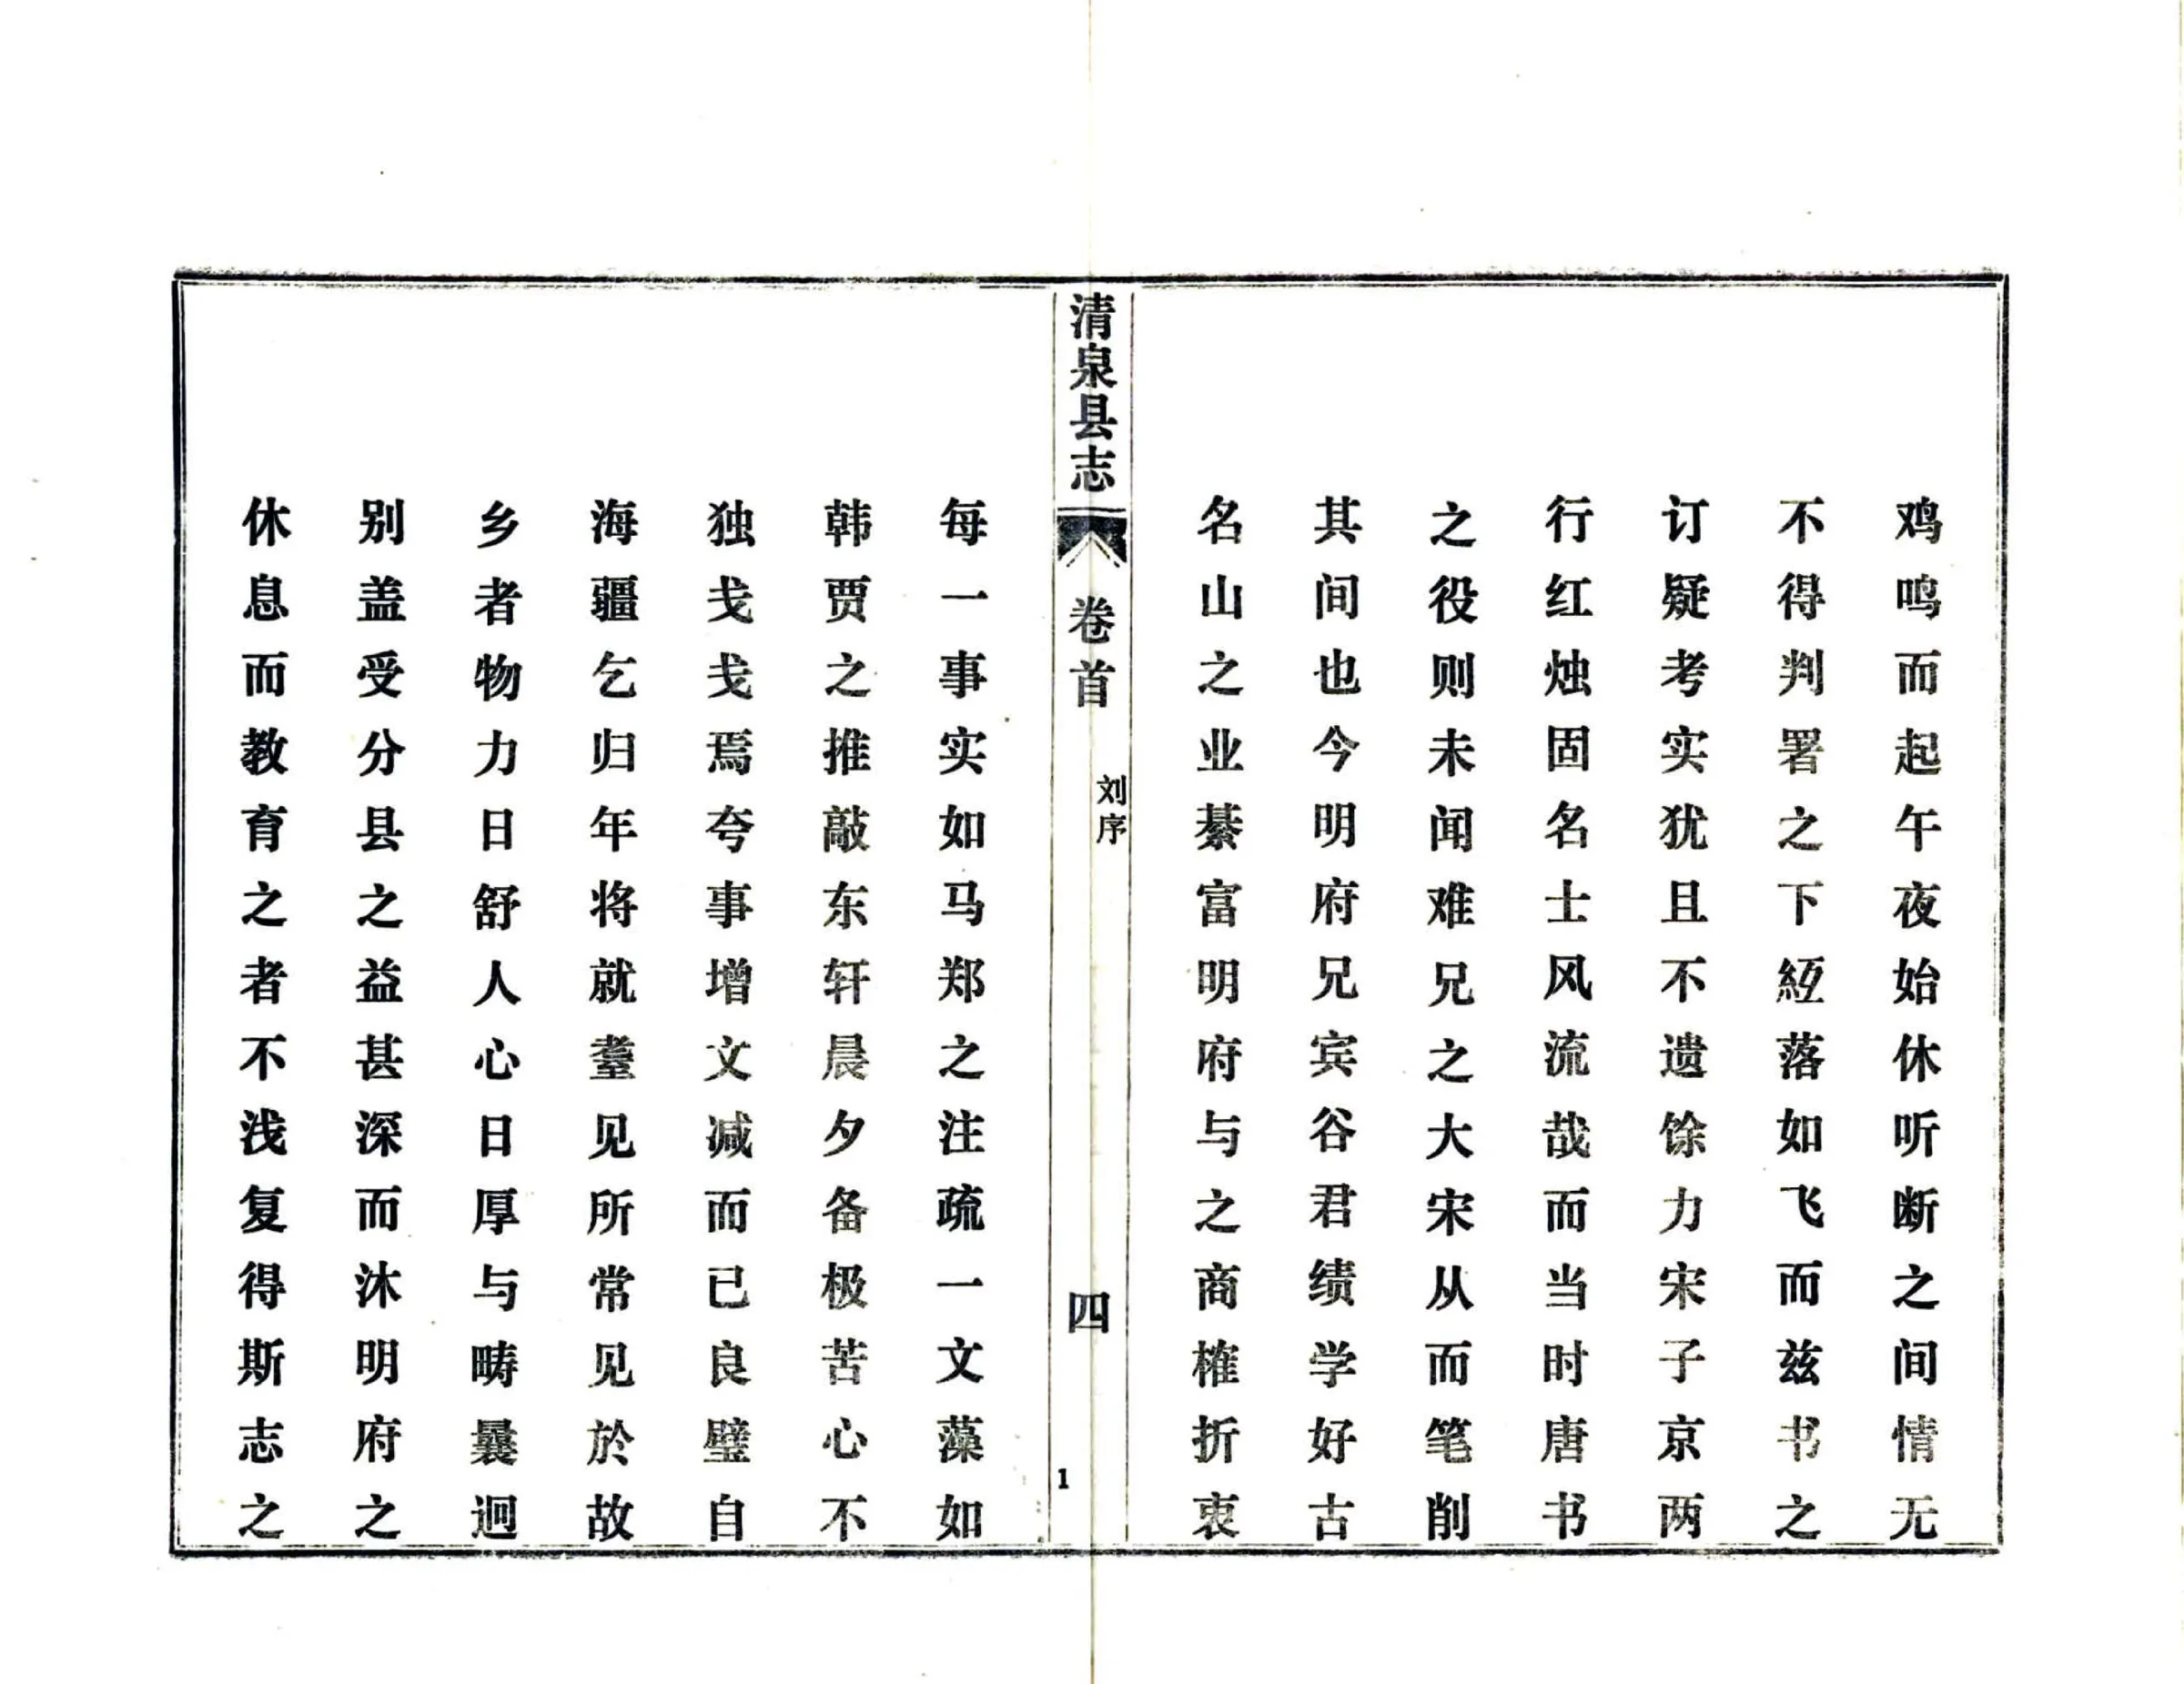 鸡鸣而起午夜始休听断之间情无
不得判署之下綋落如飞而兹书之
订疑考实犹且不遗馀力宋子京两
行红烛固名士风流哉而当时唐书
之役则未闻难兄之大宋从而笔削
其间也今明府兄宾谷君绩学好古
名山之业綦富明府与之商榷折衷
清泉县志
卷首
刘序
四
1
每一事实如马郑之注疏一文藻如
韩贾之推敲东轩晨夕备极苦心不
独戋戋焉夸事增文减而已良璧自
海疆乞归年将就耋见所常见於故
乡者物力日舒人心日厚与畴曩迥
别盖受分县之益甚深而沐明府之
休息而教育之者不浅复得斯志之